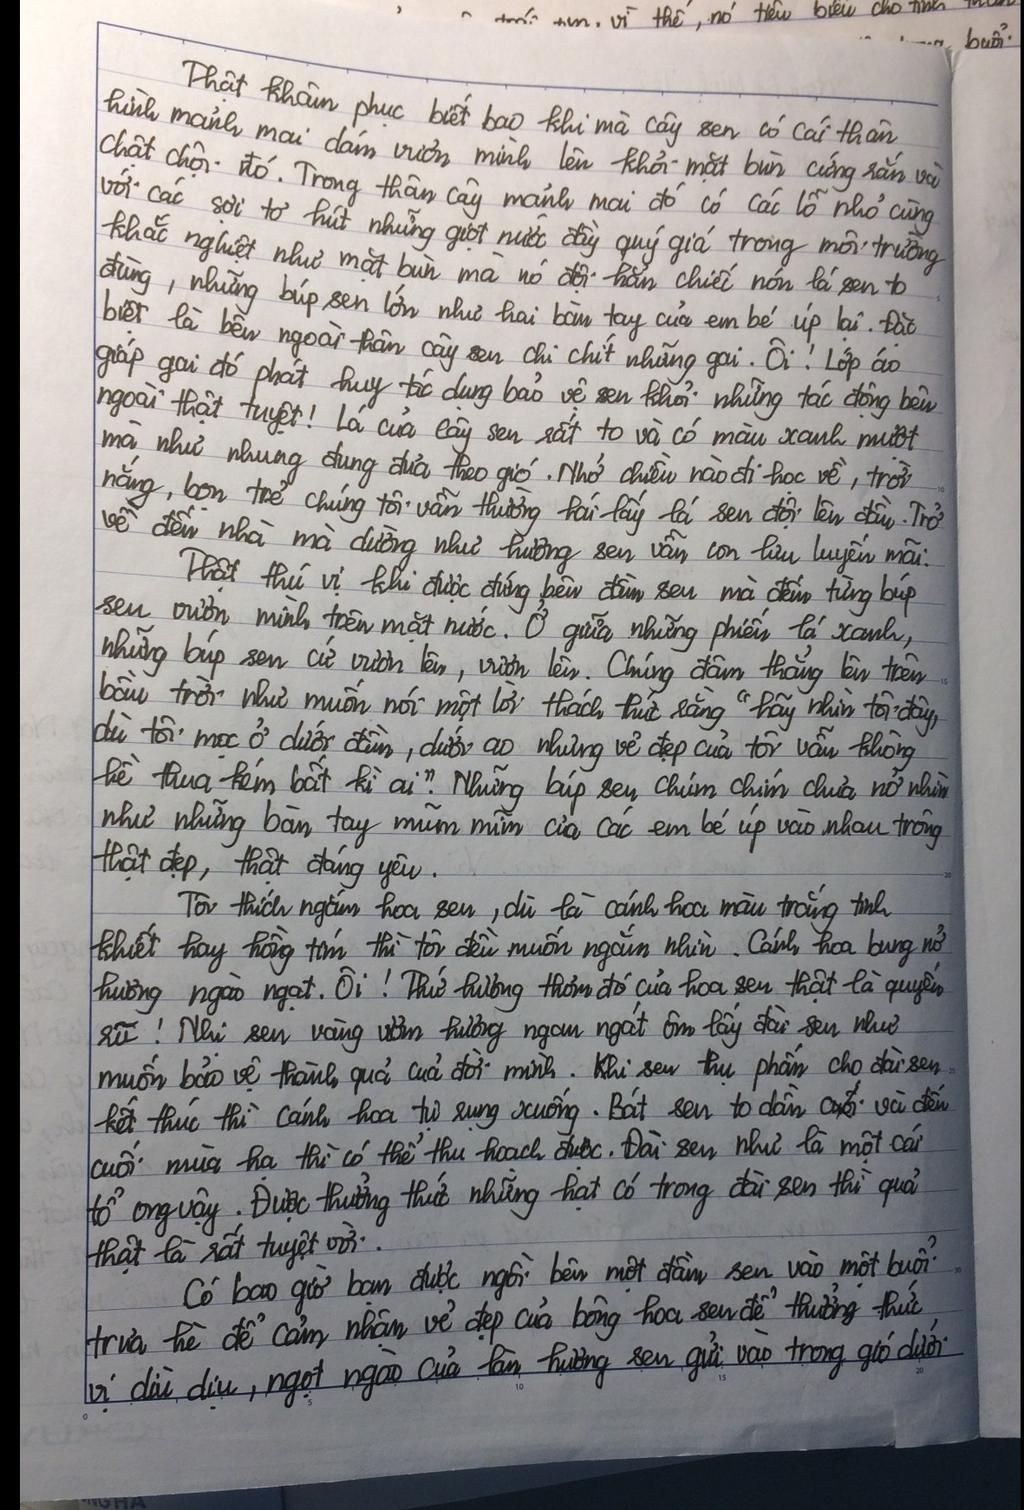 vì thế, nó tiêu biểu cho tinh
buổi
Thật khâm phục biết bao khi mà cây sen có cái thân
hình mảnh mai dám vươn mình lên khỏi mặt bùn cứng rắn và
chật chội đó. Trong thân cây mảnh mai đó có các lỗ nhỏ cùng
với các sợi tơ hút những giọt nước đầy quý giá trong môi trường
khắc nghiệt như mặt bùn mà nó đội hẳn chiếc nón lá sen to
đùng, những búp sen lớn như hai bàn tay của em bé úp lại. Đặc
biệt là bên ngoài thân cây sen chi chít những gai. Ôi! Lớp áo
giáp gai đó phát huy tác dụng bảo vệ sen khỏi những tác động bên
ngoài thật tuyệt! Lá của cây sen rất to và có màu xanh mướt
mà như nhung đung đưa theo gió. Nhớ chiều nào đi học về, trời
nắng, bọn trẻ chúng tôi vẫn thường hái lấy lá sen đội lên đầu. Trở
về đến nhà mà dường như hương sen vẫn con lưu luyến mãi.
Thật thú vị khi được đứng bên đầm sen mà đếm từng búp
sen vươn mình trên mặt nước. Ở giữa những phiến lá xanh,
những búp sen cứ vươn lên, vươn lên. Chúng đâm thẳng lên trên
bầu trời như muốn nói một lời thách thức rằng "hãy nhìn tôi đây,
dù tôi mọc ở dưới đầm, dưới ao nhưng vẻ đẹp của tôi vẫn không
hề thua kém bất kì ai". Những búp sen chúm chím chưa nở nhìn
như những bàn tay mũm mĩm của các em bé úp vào nhau trông
thật đẹp, thật đáng yêu.
Tôi thích ngắm hoa sen, dù là cánh hoa màu trắng tinh
khiết hay hồng tím thì tôi đều muốn ngắm nhìn. Cánh hoa bung nở
hương ngào ngạt. Ôi! Thứ hương thơm đó của hoa sen thật là quyến
rũ! Nhị sen vàng ươm hương ngan ngát ôm lấy đài sen như
muốn bảo vệ thành quả cuả đời mình. Khi sen thụ phấn cho đài sen
kết thúc thì cánh hoa tự rụng xuống. Bát sen to dần và đến
cuối mùa hạ thì có thể thu hoạch được. Đài sen như là một cái
tổ ong vậy. Được thưởng thức những hạt có trong đài sen thì quả
thật là rất tuyệt vời.
Có bao giờ bạn được ngồi bên một đầm sen vào một buổi
trưa hè để cảm nhận vẻ đẹp của bông hoa sen để thưởng thức
vị dìu dịu, ngọt ngào của làn hương sen gửi vào trong gió dưới